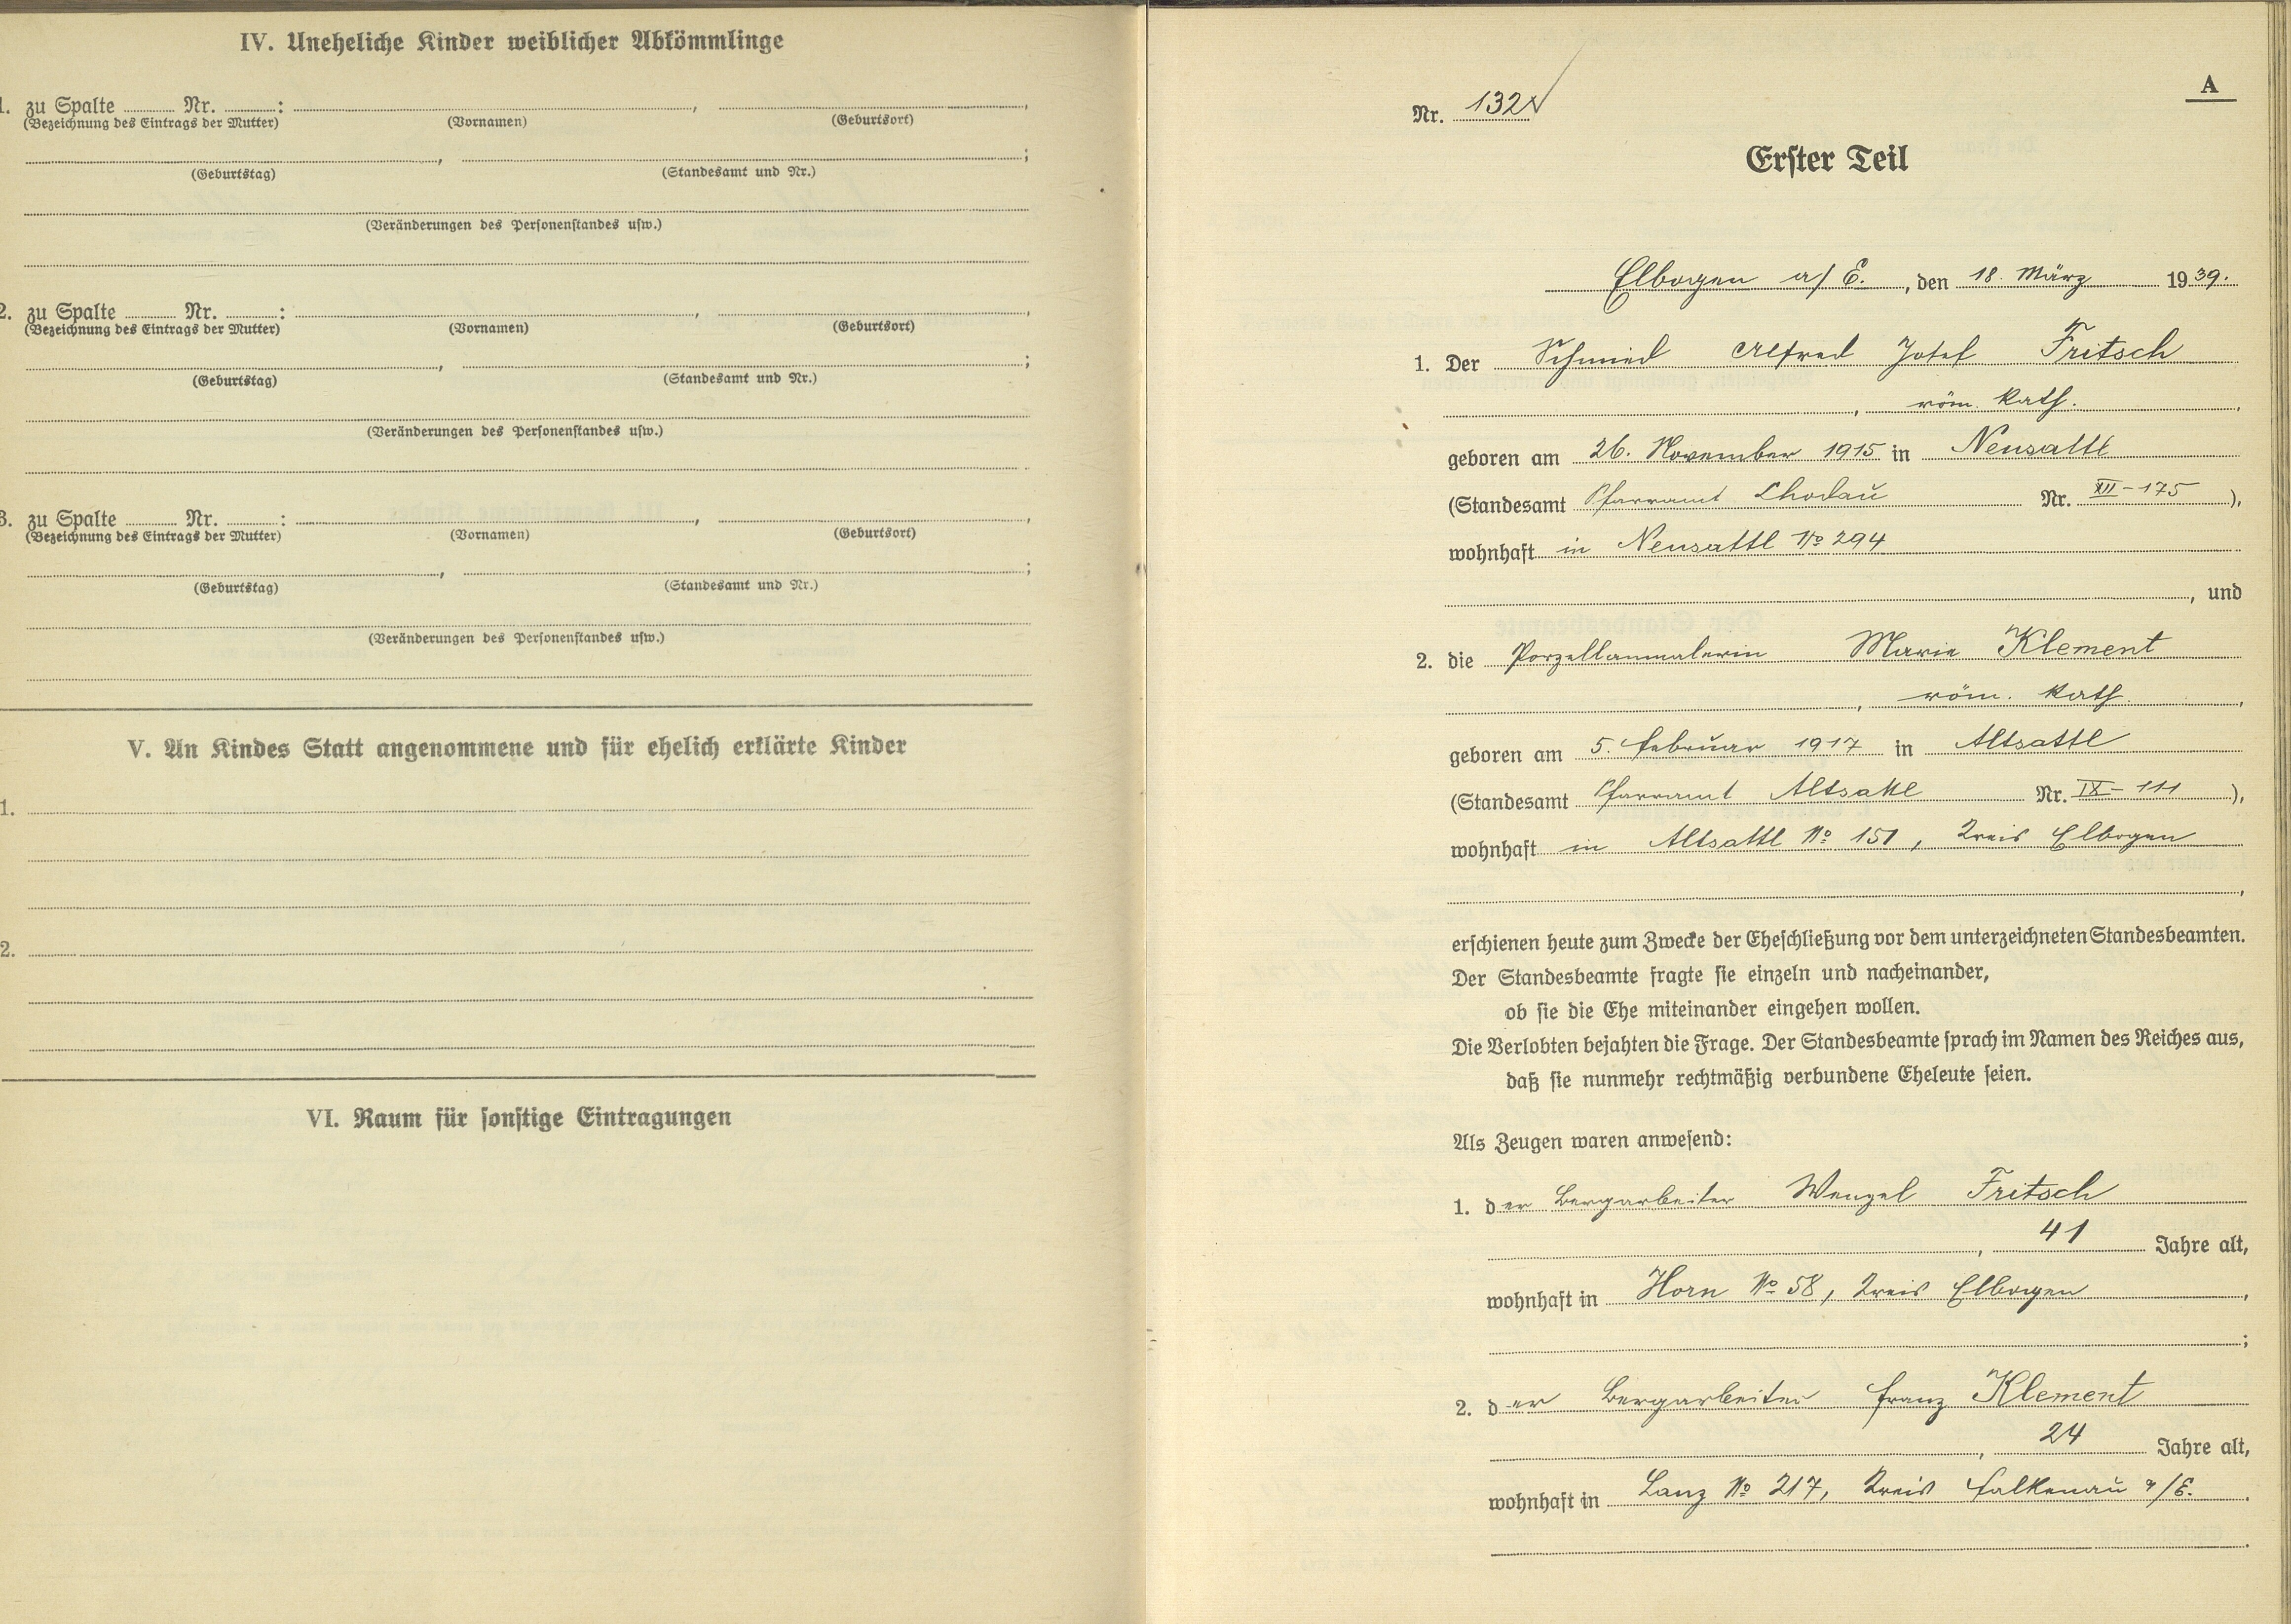 IV. Uneheliche Kinder weiblicher Abkömmlinge
1. zu Spalte ........ Nr. ........: ........, ........,
(Bezeichnung des Eintrags der Mutter) (Vornamen) (Geburtsort)
........, ........;
(Geburtstag) (Standesamt und Nr.)
(Veränderungen des Personenstandes usw.)
2. zu Spalte ........ Nr. ........: ........, ........,
(Bezeichnung des Eintrags der Mutter) (Vornamen) (Geburtsort)
........, ........;
(Geburtstag) (Standesamt und Nr.)
(Veränderungen des Personenstandes usw.)
3. zu Spalte ........ Nr. ........: ........, ........,
(Bezeichnung des Eintrags der Mutter) (Vornamen) (Geburtsort)
........, ........;
(Geburtstag) (Standesamt und Nr.)
(Veränderungen des Personenstandes usw.)
V. An Kindes Statt angenommene und für ehelich erklärte Kinder
1.
2.
VI. Raum für sonstige Eintragungen
A
Nr. 132
Erster Teil
Elbogen a/ E., den 18. März 1939.
1. Der Schmied Alfred Josef Fritsch
, röm. kath.,
geboren am 26. November 1915 in Neusattl
(Standesamt Pfarramt Chodau Nr. XII-175),
wohnhaft in Neusattl No 294
, und
2. die Porzellanmalerin Marie Klement
, röm. kath.,
geboren am 5. Februar 1917 in Altsattl
(Standesamt Pfarramt Altsattl Nr. IX-111),
wohnhaft in Altsattl No 151, Kreis Elbogen
,
erschienen heute zum Zwecke der Eheschließung vor dem unterzeichneten Standesbeamten.
Der Standesbeamte fragte sie einzeln und nacheinander,
ob sie die Ehe miteinander eingehen wollen.
Die Verlobten bejahten die Frage. Der Standesbeamte sprach im Namen des Reiches aus,
daß sie nunmehr rechtmäßig verbundene Eheleute seien.
Als Zeugen waren anwesend:
1. der Bergarbeiter Wenzel Fritsch
, 41 Jahre alt,
wohnhaft in Horn No 58, Kreis Elbogen,
;
2. der Bergarbeiter Franz Klement
, 24 Jahre alt,
wohnhaft in Lanz No 217, Kreis Falkenau a/E.
.